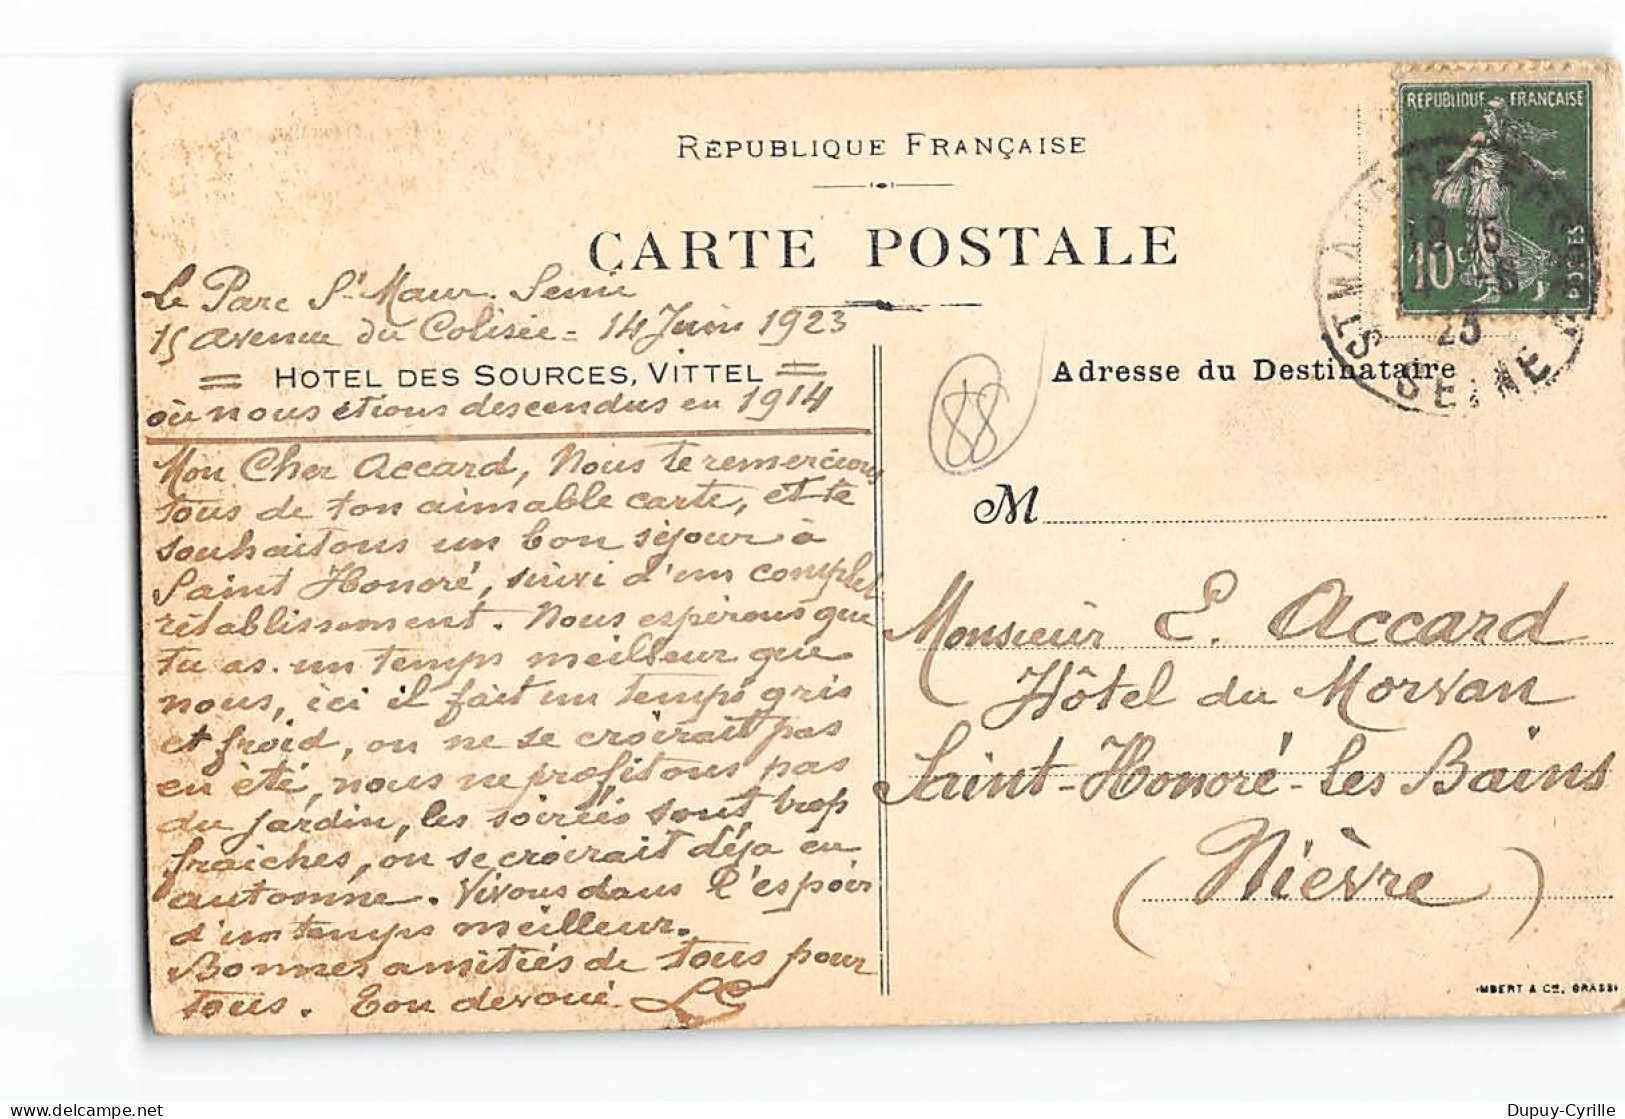 RÉPUBLIQUE FRANÇAISE
CARTE POSTALE
RÉPUBLIQUE FRANÇAISE
10c
POSTES
ST MAUR
SEINE
23
Le Parc St Maur. Seine
15 avenue du Colisée = 14 Juin 1923
= HOTEL DES SOURCES, VITTEL =
où nous étions descendus en 1914
Mon Cher Accard, Nous te remercions
tous de ton aimable carte, et te
souhaitons un bon séjour à
Saint Honoré, suivi d'un complet
rétablissement. Nous espérons que
tu as un temps meilleur que
nous, ici il fait un temps gris
et froid, on ne se croirait pas
en été, nous ne profitons pas
du jardin, les soirées sont trop
fraiches, on se croirait déja en
automne. Vivons dans l'espoir
d'un temps meilleur.
Bonnes amitiés de tous pour
tous. Ton dévoué LC
Adresse du Destinataire
88
M
Monsieur E. Accard
Hôtel du Morvan
Saint-Honoré-les Bains
(Nièvre)
IMBERT & Cie, GRASSE
Dupuy-Cyrille